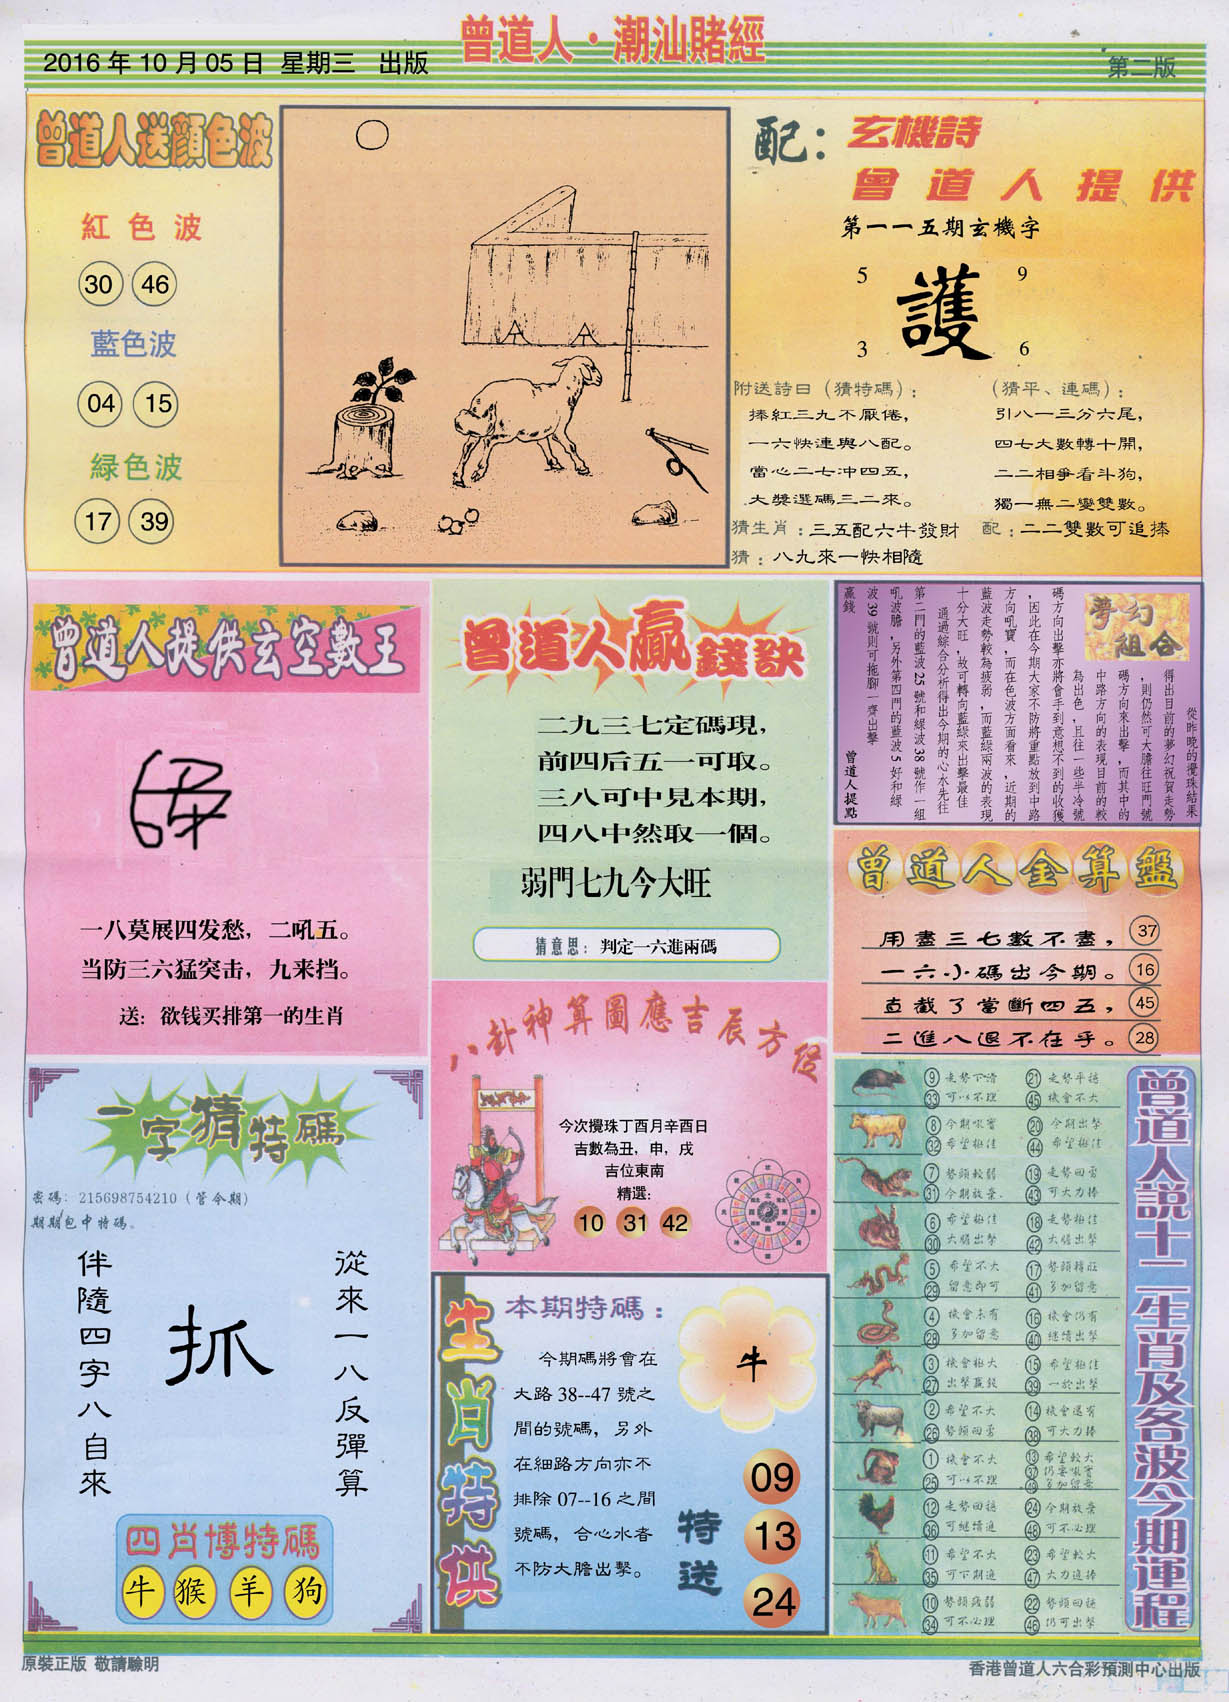 曾道人·潮汕賭經
2016年10月05日 星期三 出版
第二版
曾道人送顏色波
紅色波
30 46
藍色波
04 15
緑色波
17 39
配：玄機詩
曾道人提供
第一一五期玄機字
5 9
護
3 6
附送詩曰（猜特碼）：
捧紅三九不厭倦，
一六快連與八配。
當心二七冲四五，
大獎選碼三二來。
（猜平、連碼）：
引八一三分六尾，
四七大數轉十開，
二二相爭看斗狗，
獨一無二變雙數。
猜生肖：三五配六牛發財
配：二二雙數可追捧
猜：八九來一快相隨
曾道人提供玄空數王
一八莫展四发愁，二吼五。
当防三六猛突击，九来挡。
送：欲钱买排第一的生肖
曾道人贏錢訣
二九三七定碼現，
前四后五一可取。
三八可中見本期，
四八中然取一個。
弱門七九今大旺
猜意思：判定一六進兩碼
夢幻
組合
從昨晚的攪珠結果
得出目前的夢幻祝賀走勢
，則仍然可大膽往旺門號
碼方向來出擊，而其中的
中路方向的表現目前的較
為出色，且往一些半冷號
碼方向出擊亦將會手到意想不到的收獲
，因此在今期大家不防將重點放到中路
方向吼寶，而在色波方面看來，近期的
藍波走勢較為疲弱，而藍綠兩波的表現
十分大旺，故可轉向藍綠來出擊最佳
通過綜合分析得出今期的心水先往
第二門的藍波25號和綠波38號作一組
吼波膽，另外第四門的藍波5好和綠
波39號則可拖腳一齊出擊
贏錢
曾道人提點
曾道人金算盤
用盡三七數不盡， 37
一六小碼出今期。 16
直截了當斷四五， 45
二進八退不在乎。 28
八卦神算圖應吉辰方位
今次攪珠丁酉月辛酉日
吉數為丑，申，戌
吉位東南
精選：
10 31 42
一字猜特碼
密碼：215698754210（管今期）
期期包中特碼。
從來一八反彈算
抓
伴隨四字八自來
四肖博特碼
牛 猴 羊 狗
生肖特供
本期特碼：
今期碼將會在
大路38--47號之
間的號碼，另外
在細路方向亦不
排除07--16之間
號碼，合心水者
不防大膽出擊。
牛
特送
09
13
24
曾道人説十二生肖及各波今期運程
9 走勢下滑 21 走勢平穩
33 可以不理 45 機會不大
8 今期吼寶 20 今期出擊
32 希望極佳 44 希望極佳
7 勢頭較弱 19 走勢回勇
31 今期放棄 43 可大力捧
6 希望極佳 18 走勢極佳
30 大膽出擊 42 大膽出擊
5 希望不大 17 勢頭轉旺
29 留意即可 41 多加留意
4 機會未有 16 機會仍有
28 多加留意 40 繼續出擊
3 機會極大 15 希望極佳
27 出擊贏錢 39 一於出擊
2 希望不大 14 機會還有
26 勢頭回勇 38 可大力捧
1 機會不大 13 希望較大
25 可以不理 37 仍要吼寶
49 多加留意
12 走勢回穩 24 今期放棄
36 可繼續追 48 可不必理
11 希望不大 23 希望較大
35 可下期追 47 大力追捧
10 勢頭疲弱 22 勢頭回穩
34 可不必理 46 仍可出擊
原裝正版 敬請驗明
香港曾道人六合彩預測中心出版